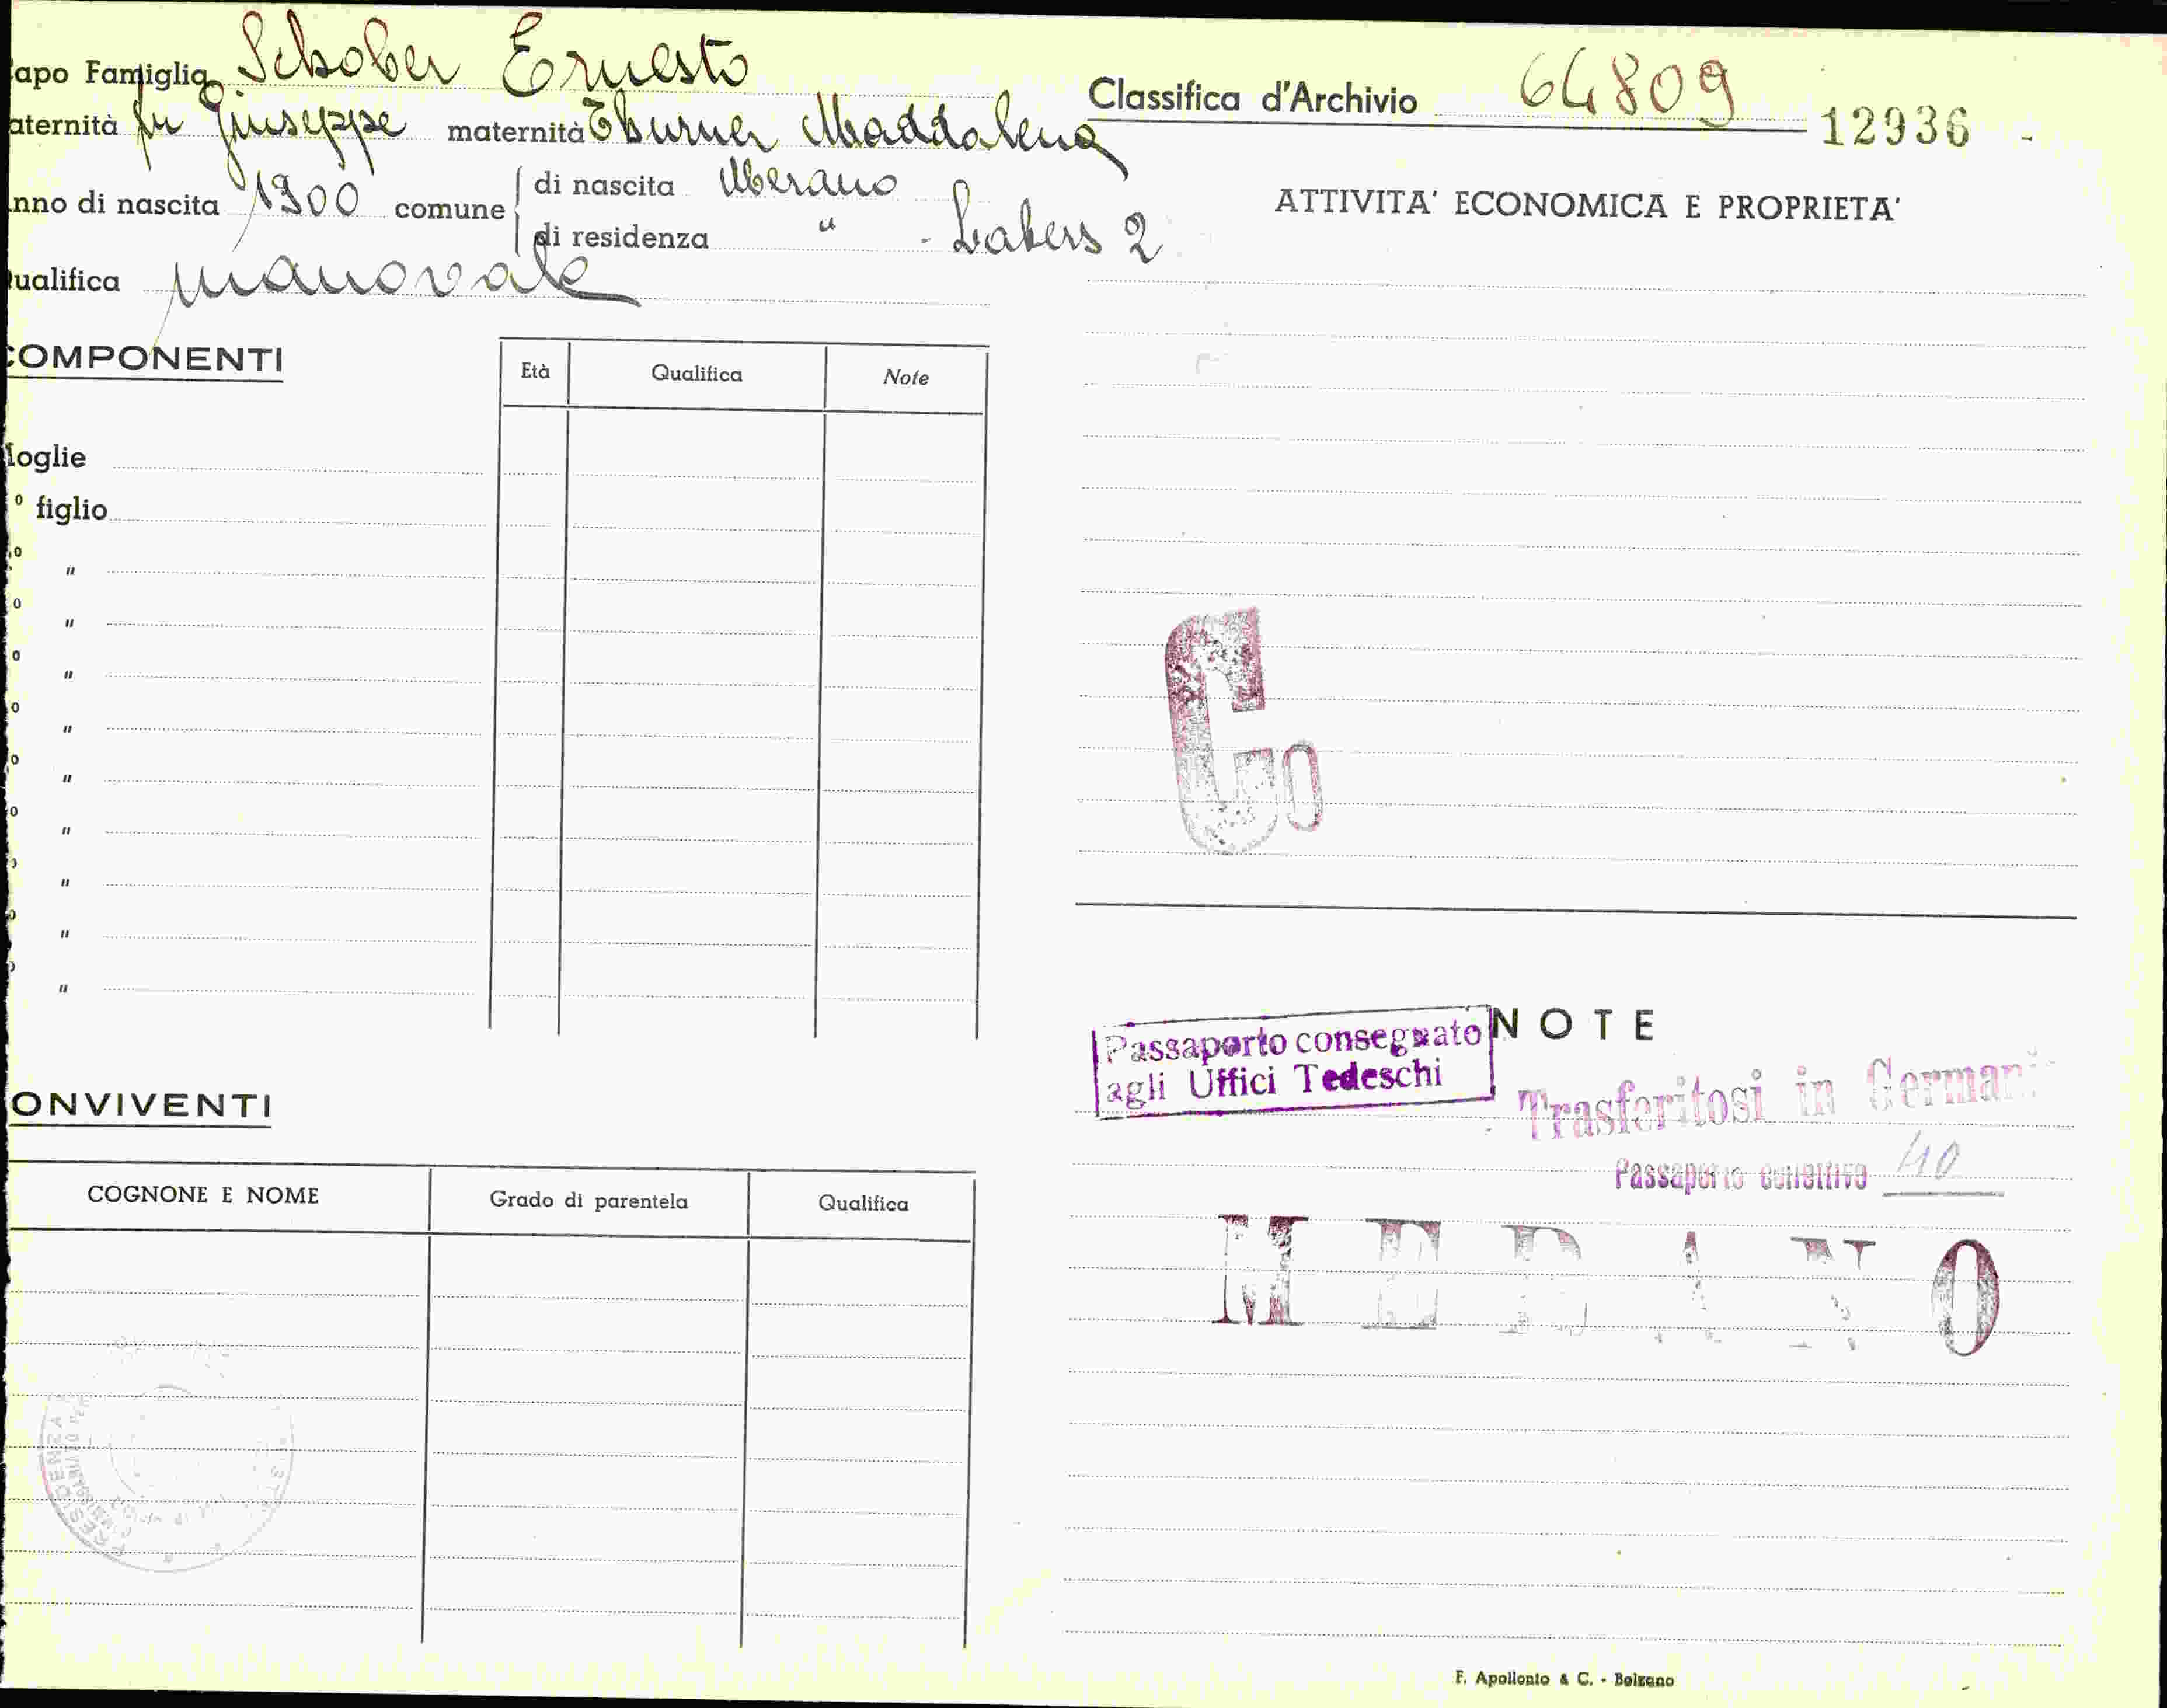 apo Famiglia Schober Ernesto
aternità fu Giuseppe maternità Thurner Maddalena
nno di nascita 1900 comune di nascita Merano
di residenza " - Labers 2
ualifica manovale
Classifica d'Archivio 64809 12936 -
ATTIVITA' ECONOMICA E PROPRIETA'
COMPONENTI
Età Qualifica Note
oglie
° figlio
o "
o "
o "
o "
o "
o "
o "
o "
o "
Co
ONVIVENTI
COGNONE E NOME Grado di parentela Qualifica
NOTE
Passaporto consegnato
agli Uffici Tedeschi
Trasferitosi in German
Passaporto collettivo 40
MERANO
F. Apollonio & C. - Bolzano